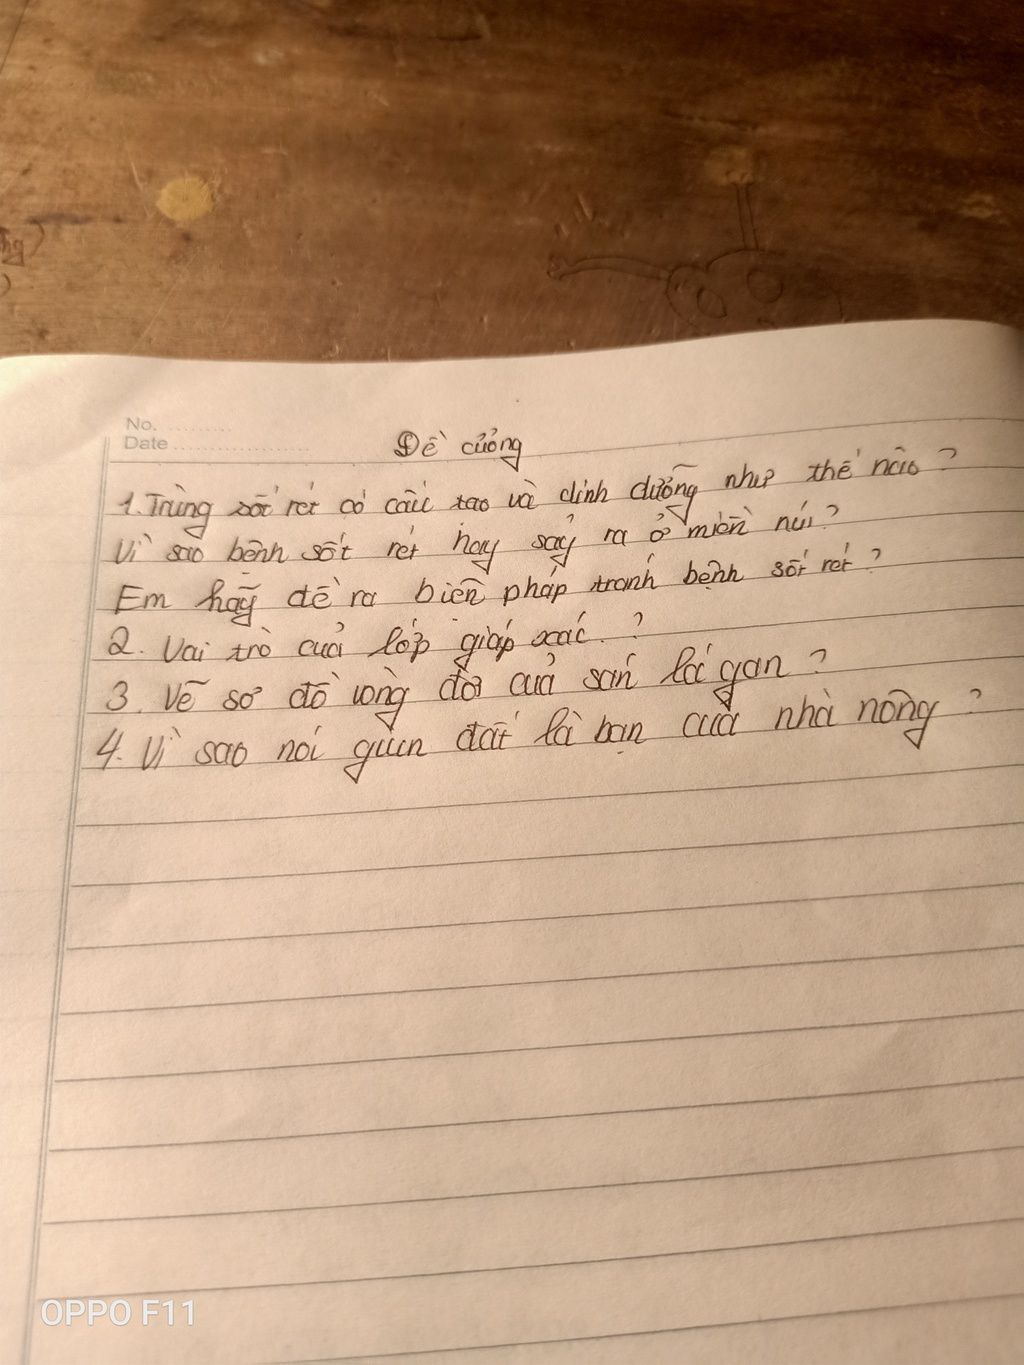 No. ..........
Date ....................
Đề cưởng
1. Trùng sốt rét có cấu tạo và dinh dưỡng như thế nào?
Vì sao bệnh sốt rét hay sảy ra ở miền núi?
Em hãy đề ra biện pháp tránh bệnh sốt rét?
2. Vai trò của lớp giáp xác. ?
3. Vẽ sơ đồ vòng đời của sán lá gan?
4. Vì sao nói giun đất là bạn của nhà nông?
OPPO F11